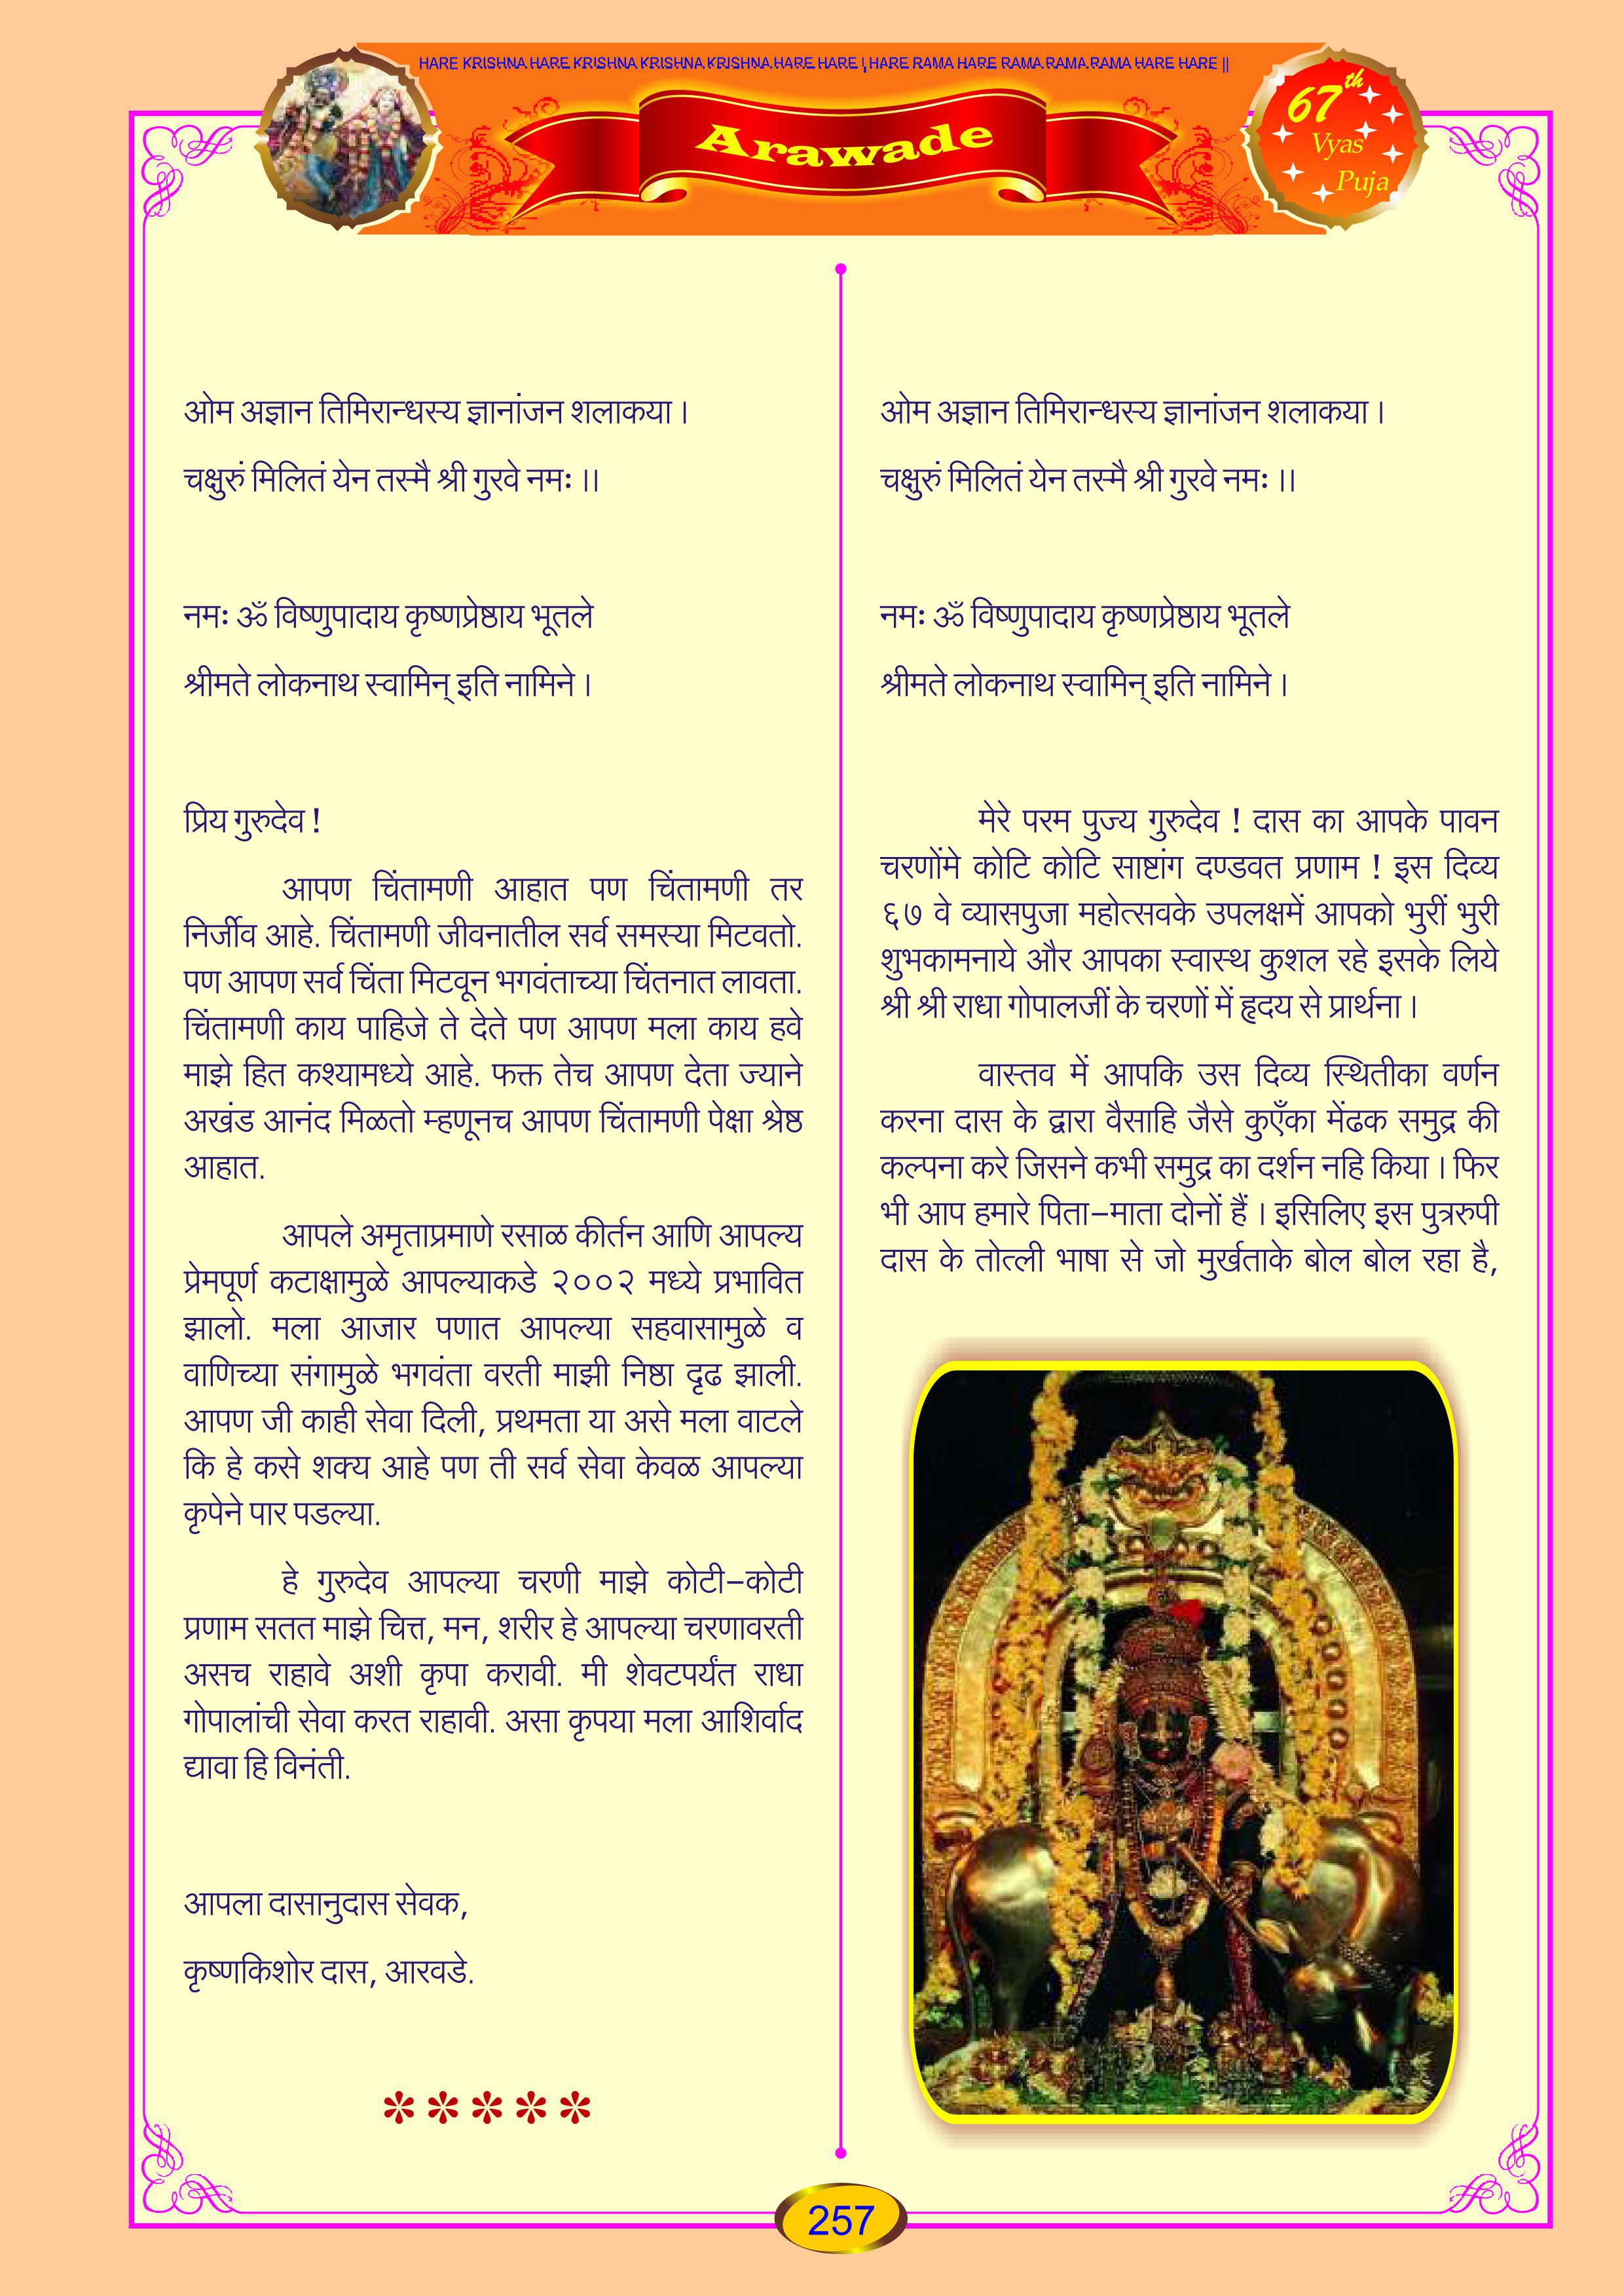 HARE KRISHNA HARE KRISHNA KRISHNA KRISHNA HARE HARE | HARE RAMA HARE RAMA RAMA RAMA HARE HARE ||
Arawade
67th
Vyas
Puja
ओम अज्ञान तिमिरान्धस्य ज्ञानांजन शलाकया ।
चक्षुरुं मिलितं येन तस्मै श्री गुरवे नमः ।।
नमः ॐ विष्णुपादाय कृष्णप्रेष्ठाय भूतले
श्रीमते लोकनाथ स्वामिन् इति नामिने ।
प्रिय गुरुदेव !
आपण चिंतामणी आहात पण चिंतामणी तर
निर्जीव आहे. चिंतामणी जीवनातील सर्व समस्या मिटवतो.
पण आपण सर्व चिंता मिटवून भगवंताच्या चिंतनात लावता.
चिंतामणी काय पाहिजे ते देते पण आपण मला काय हवे
माझे हित कश्यामध्ये आहे. फक्त तेच आपण देता ज्याने
अखंड आनंद मिळतो म्हणूनच आपण चिंतामणी पेक्षा श्रेष्ठ
आहात.
आपले अमृताप्रमाणे रसाळ कीर्तन आणि आपल्य
प्रेमपूर्ण कटाक्षामुळे आपल्याकडे २००२ मध्ये प्रभावित
झालो. मला आजार पणात आपल्या सहवासामुळे व
वाणिच्या संगामुळे भगवंता वरती माझी निष्ठा दृढ झाली.
आपण जी काही सेवा दिली, प्रथमता या असे मला वाटले
कि हे कसे शक्य आहे पण ती सर्व सेवा केवळ आपल्या
कृपेने पार पडल्या.
हे गुरुदेव आपल्या चरणी माझे कोटी–कोटी
प्रणाम सतत माझे चित्त, मन, शरीर हे आपल्या चरणावरती
असच राहावे अशी कृपा करावी. मी शेवटपर्यंत राधा
गोपालांची सेवा करत राहावी. असा कृपया मला आशिर्वाद
द्यावा हि विनंती.
आपला दासानुदास सेवक,
कृष्णकिशोर दास, आरवडे.
*****
ओम अज्ञान तिमिरान्धस्य ज्ञानांजन शलाकया ।
चक्षुरुं मिलितं येन तस्मै श्री गुरवे नमः ।।
नमः ॐ विष्णुपादाय कृष्णप्रेष्ठाय भूतले
श्रीमते लोकनाथ स्वामिन् इति नामिने ।
मेरे परम पुज्य गुरुदेव ! दास का आपके पावन
चरणोंमे कोटि कोटि साष्टांग दण्डवत प्रणाम ! इस दिव्य
६७ वे व्यासपुजा महोत्सवके उपलक्षमें आपको भुरीं भुरी
शुभकामनाये और आपका स्वास्थ कुशल रहे इसके लिये
श्री श्री राधा गोपालजीं के चरणों में हृदय से प्रार्थना ।
वास्तव में आपकि उस दिव्य स्थितीका वर्णन
करना दास के द्वारा वैसाहि जैसे कुएँका मेंढक समुद्र की
कल्पना करे जिसने कभी समुद्र का दर्शन नहि किया । फिर
भी आप हमारे पिता–माता दोनों हैं । इसिलिए इस पुत्ररुपी
दास के तोत्ली भाषा से जो मुर्खताके बोल बोल रहा है,
257